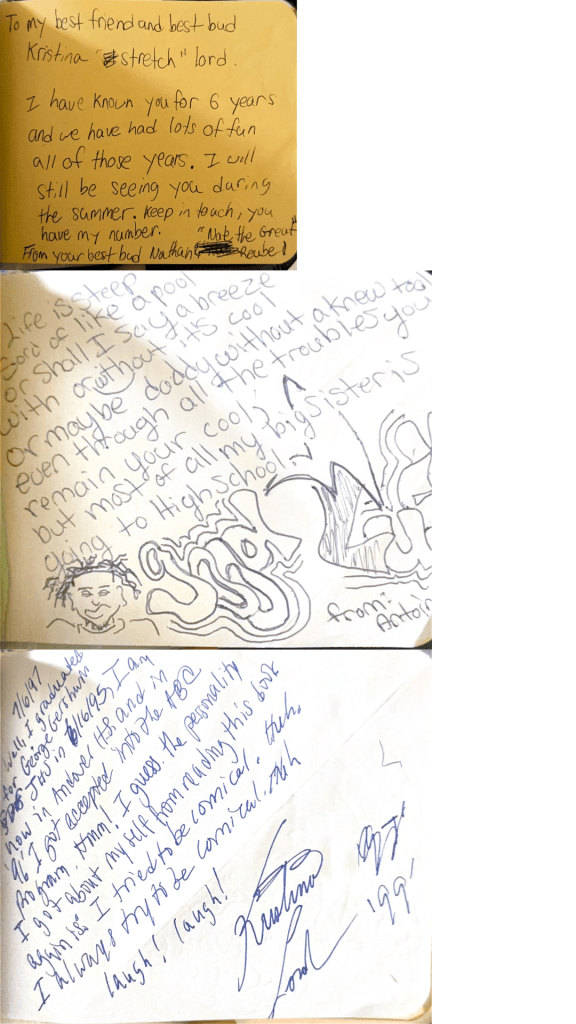 To my best friend and best bud
Kristina "stretch" lord.
I have known you for 6 years
and we have had lots of fun
all of those years. I will
still be seeing you during
the summer. Keep in touch, you
have my number.
"Nate the Great"
From your best bud Nathan Reube
Life is steep
sord of like a pool
or shall I say a breeze
with or without its cool
or maybe daddy without a knew tool
even through all the troubles you
remain your cool,
but most of all my big sister is
going to High school
from:
Antoin
7/6/97
Well, I graduated
for George Gershwin
JHS in 6/16/95, I am
now in Andover HS and in
'96 I got accepted into the ABC
program. Hmm! I guess the personality
I got about myself from reading this book
again is I tried to be comical. Huh.
I always try to be comical. Hah
laugh! laugh!
Kristina
Lord
'99'